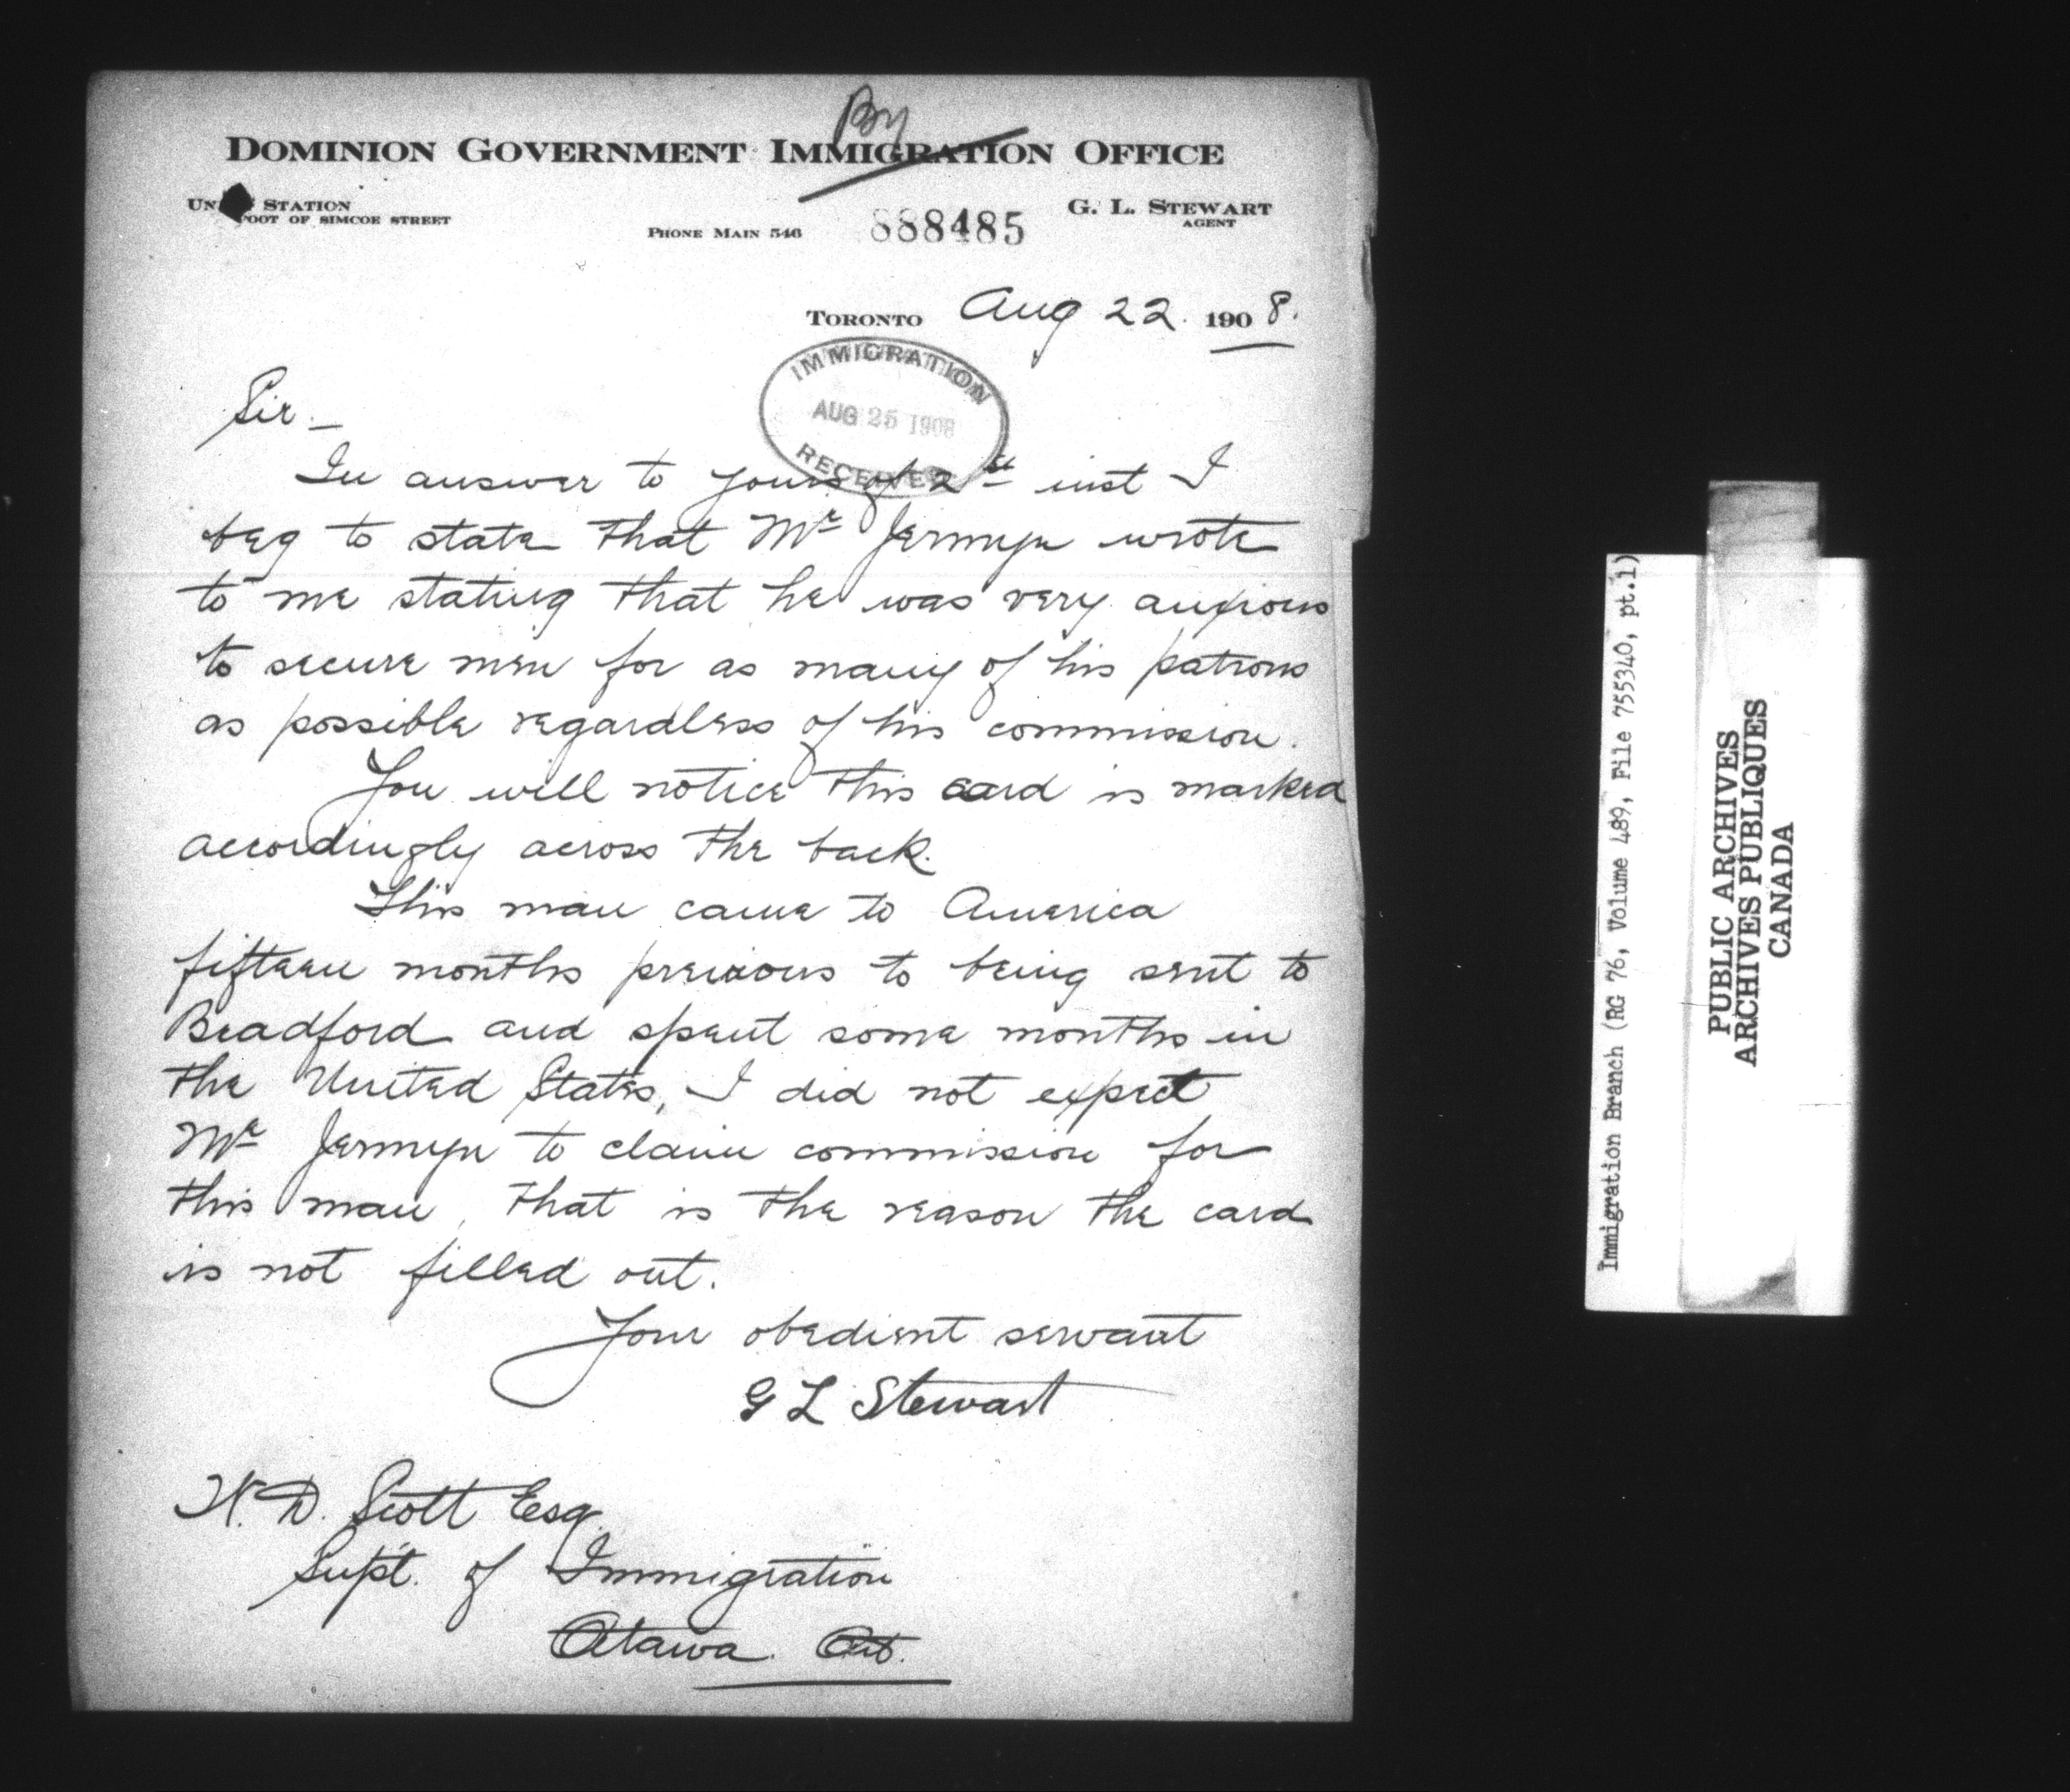 By
DOMINION GOVERNMENT IMMIGRATION OFFICE
STATION
FOOT OF SIMCOE STREET
PHONE MAIN 546
888485
G. L. STEWART
AGENT
TORONTO Aug 22. 1908.
IMMIGRATION
AUG 25 1908
RECEIVED
Sir —
In answer to yours of 2 st inst I
beg to state that Mr Jermyn wrote
to me stating that he was very anxious
to secure men for as many of his patrons
as possible regardless of his commission.
You will notice this card is marked
accordingly across the back.
This man came to America
fifteen months previous to being sent to
Bradford and spent some months in
the United States, I did not expect
Mr Jermyn to claim commission for
this man, that is the reason the card
is not filled out.
Your obedient servant
G L Stewart
W. D. Scott Esq.
Supt. of Immigration
Ottawa. Ont.
Immigration Branch (RG 76, Volume 489, File 755340, pt.1)
PUBLIC ARCHIVES
ARCHIVES PUBLIQUES
CANADA